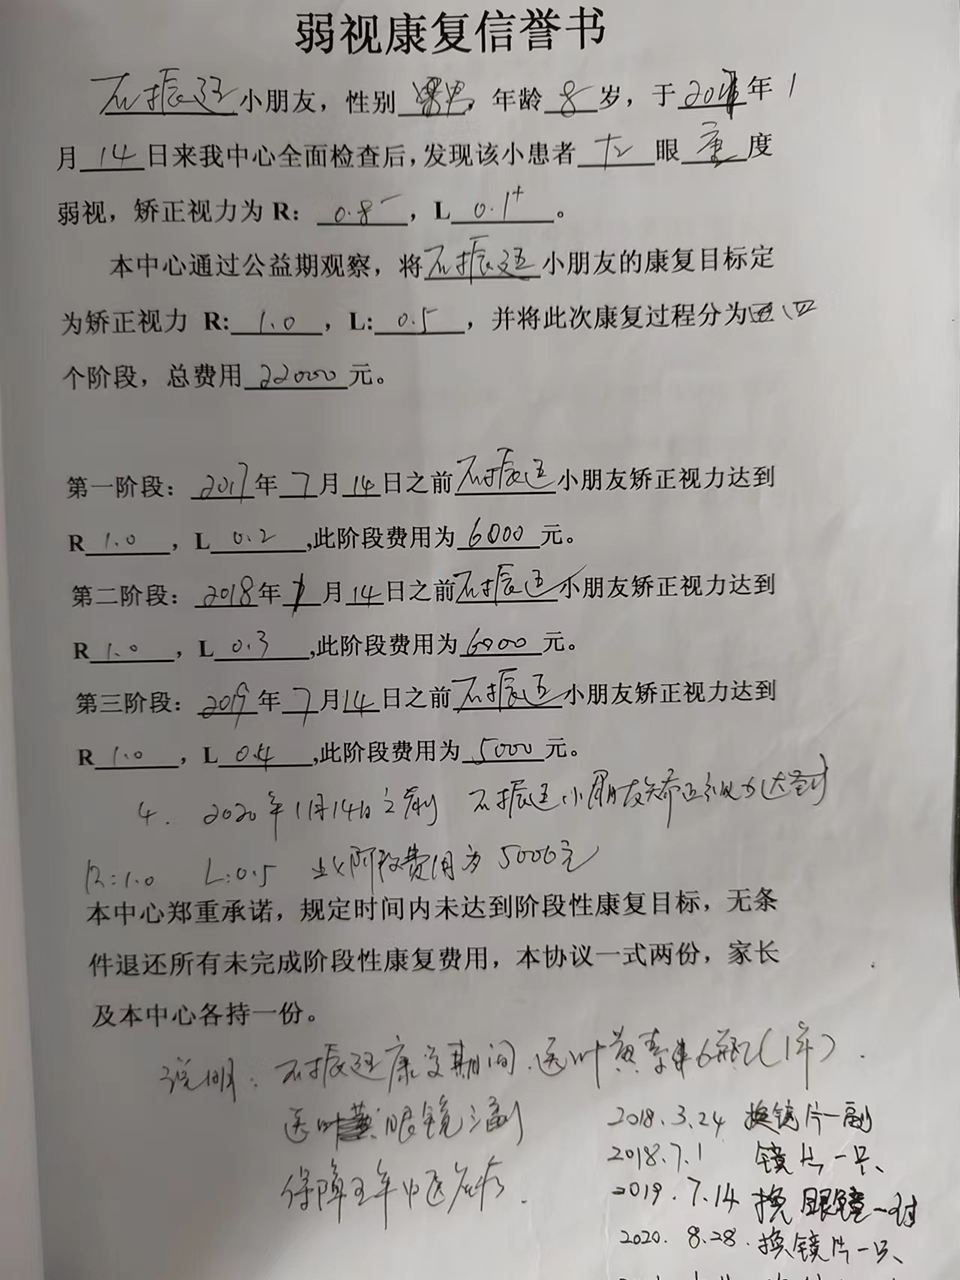 弱视康复信誉书
石振廷小朋友，性别男，年龄8岁，于201年1
月14日来我中心全面检查后，发现该小患者左眼重度
弱视，矫正视力为R：0.8⁻，L0.1⁺。
本中心通过公益期观察，将石振廷小朋友的康复目标定
为矫正视力 R:1.0，L:0.5，并将此次康复过程分为四
个阶段，总费用22000元。
第一阶段：2017年7月14日之前石振廷小朋友矫正视力达到
R1.0，L0.2,此阶段费用为6000元。
第二阶段：2018年1月14日之前石振廷小朋友矫正视力达到
R1.0，L0.3,此阶段费用为6000元。
第三阶段：2019年7月14日之前石振廷小朋友矫正视力达到
R1.0，L0.4,此阶段费用为5000元。
4. 2020年1月14日之前 石振廷小朋友矫正视力达到
R:1.0 L:0.5 此阶段费用为5000元
本中心郑重承诺，规定时间内未达到阶段性康复目标，无条
件退还所有未完成阶段性康复费用，本协议一式两份，家长
及本中心各持一份。
说明：石振廷康复期间，送叶黄素6瓶(1年).
送眼镜三副
保障五年内
2018.3.24 换镜片一副
2018.7.1 镜片一只
2019.7.14 换眼镜一付
2020.8.28.换镜片一只